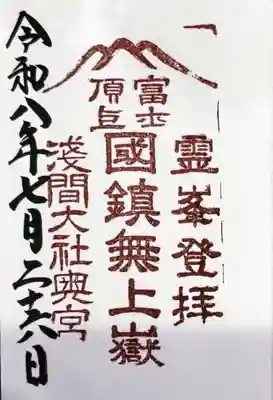 霊峯登拝
富士
頂上
國鎮無上嶽
淺間大社奥宮
令和八年七月二十六日